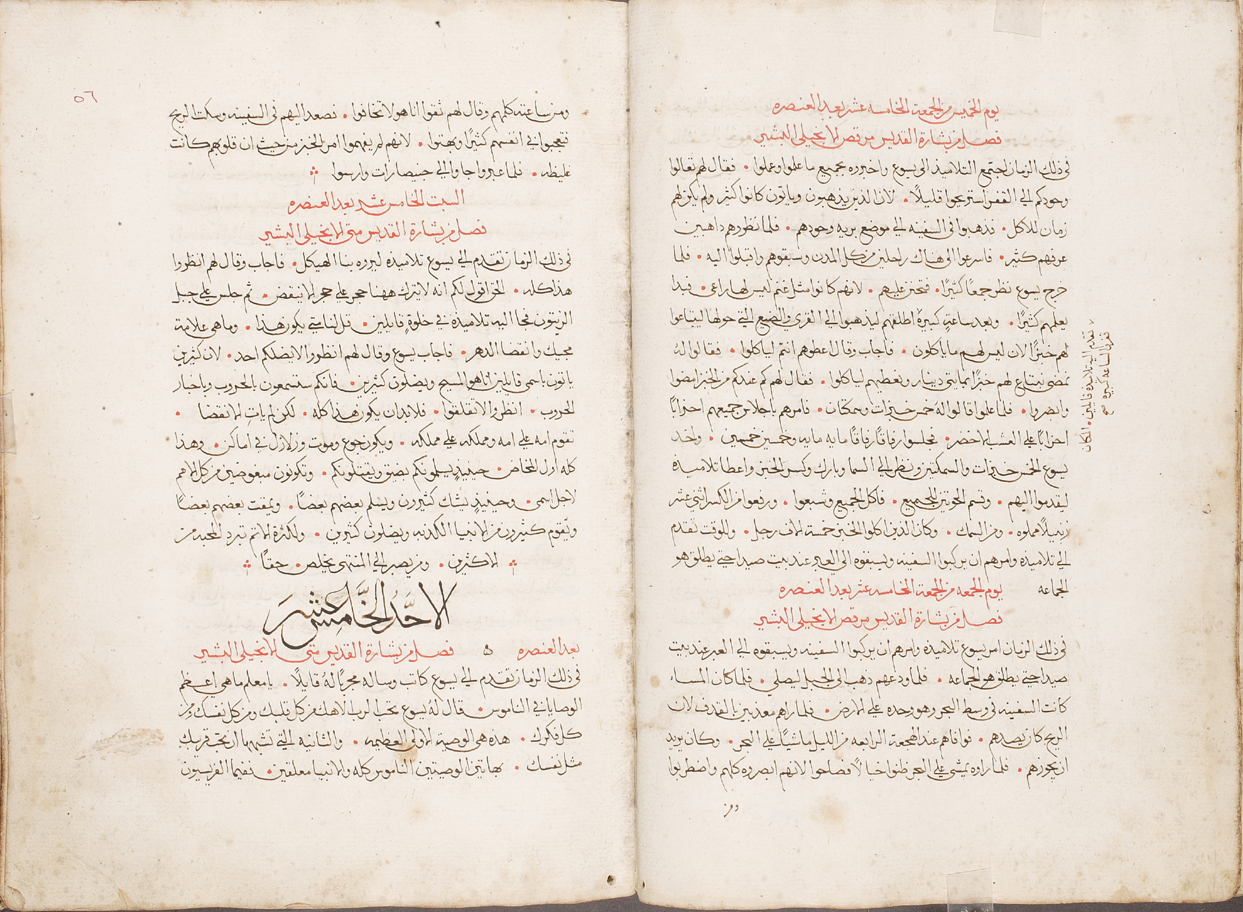 يوم الخميس من الجمعة الخامسه عشر بعد العنصره
فصل من بشارة القديس مرقص الانجيلي البشير
في ذلك الزمان اجتمع التلاميذ الى يسوع واخبروه بجميع ما علموا وعملوا • فقال لهم تعالوا
وحدكم الى القفر استريحوا قليلاً • لان الذين يذهبون وياتون كانوا كثير ولم يكن لهم
زمان للاكل • فذهبوا في السفينه الى موضع بريه وحدهم • فلما نظروهم ذاهبين
عرفهم كثير • فاسرعوا الى هناك راجلين من كل المدن وسبقوهم واقبلوا اليه • فلما
خرج يسوع نظر جمعًا كثيرًا • فتحنن عليهم • لانهم كانوا مثل غنم ليس لها راعي • فبدا
يعلمهم كثيرًا • وبعد ساعةٍ كبيرةً اطلقهم ليذهبوا الى القرى والضيع التي حولها ليبتاعوا
لهم خبزًا لان ليس لهم ما ياكلون • فاجاب وقال اعطوهم انتم لياكلوا • فقالوا له
نمضي نبتاع لهم خبزًا بمايتي دينار ونعطيهم لياكلوا • فقال لهم كم عندكم من الخبز امضوا
وانضروا • فلما علموا قالوا له خمس خبزات وسمكتان • فامرهم باجلاس جميعهم احزابًا
احزابًا على العشب الاخضر • فجلسوا رفاقًا رفاقًا مايه مايه وخمسين خمسين • واخذ
يسوع الخمس خبزات والسمكتين ونظر الى السما وبارك وكسر الخبز واعطا تلاميذه
ليقدموا اليهم • وقسم الحوتين للجميع • فاكل الجميع وشبعوا • ورفعوا من الكسر اثني عشر
زنبيلاً مملوه • ومن السمك • وكان الذين اكلوا الخبز خمسة الاف رجل • وللوقت تقدم
الى تلاميذه وامرهم ان يركبوا السفينه ويسبقوه الى العبر عند بيت صيدا حتى يطلق هو
الجماعه يوم الجمعه من الجمعة الخامسه عشر بعد العنصره
فصل من بشارة القديس مرقص الانجيلي البشير
في ذلك الزمان امر يسوع تلاميذه وامرهم ان يركبوا السفينه ويسبقوه الى العبر عند بيت
صيدا حتى يطلق هو الجماعه • فلما ودعهم ذهب الى الجبل ليصلي • فلما كان المساء
كانت السفينه في وسط البحر وهو وحده على الارض • فلما راهم معذبين القدف لان
الريح كان يصدهم • فوافاهم عند الهجعة الرابعه من الليل ماشيًا على البحر • وكان يريد
ان يجوزهم • فلما راوه يمشي على البحر ظنوا خيالاً فصاحوا لانهم ابصروه كلهم واضطربوا
ومن
تقدم اليه تلاميذه قايلين • المكان
قفر والساعه كبيره صح
٥٦
ومن ساعته كلمهم وقال لهم ثقوا انا هو لا تخافوا • فصعد اليهم في السفينه وسكت الريح
فتعجبوا في انفسهم كثيرًا وبهتوا • لانهم لم يفهموا امر الخبز من حيث ان قلوبهم كانت
غليظه • فلما عبروا جاوا الى جينصارات وارسوا
السبت الخامس عشر بعد العنصره
فصل من بشارة القديس متى الانجيلي البشير
في ذلك الزمان تقدم الى يسوع تلاميذه ليروه بنا الهيكل • فاجاب وقال لهم انظروا
هذا كله • الحق اقول لكم انه لا يترك ههنا حجر على حجر الا ينقض • ثم جلس على جبل
الزيتون فجا اليه تلاميذه في خلوةٍ قايلين • قل لنا متى يكون هذا • وما هي علامة
مجيك وانقضا الدهر • فاجاب يسوع وقال لهم انظروا لا يضلكم احد • لان كثيرين
ياتون باسمي قايلين انا هو المسيح ويضلون كثيرين • فانكم ستسمعون بالحروب وباخبار
الحروب • انظروا لا تقلقوا • فلا بد ان يكون هذا كله • لكن لم يات الانقضا •
تقوم امه على امه ومملكه على مملكه • ويكون جوع وموت وزلازل في اماكن • وهذا
كله اول المخاض • حينيذٍ يسلمونكم بضيق ويقتلونكم • وتكونون مبغوضين من كل الامم
لاجل اسمي • وحينيذٍ يشك كثيرون ويسلم بعضهم بعضًا • ويمقت بعضهم بعضًا
وتقوم كثيرون من الانبيا الكدبه ويضلون كثيرين • ولكثرة الاثم تبرد المحبه من
الاكثرين • ومن يصبر الى المنتهى يخلص • حقًا
الاحد الخامس عشر
بعد العنصره ه فصل من بشارة القديس متى الانجيلي البشير
في ذلك الزمان تقدم الى يسوع كاتب وساله مجربًا له قايلاً • يا معلم ما هي اعظم
الوصايا في الناموس • قال له يسوع تحب الرب الاهك من كل قلبك ومن كل نفسك ومن
كل فكرك • هذه هي الوصية الاولى العظيمه • والثانيه التي تشبهها ان تحب قريبك
مثل نفسك • بهاتين الوصيتين الناموس كله والانبيا معلقين • فيما الفريسيون